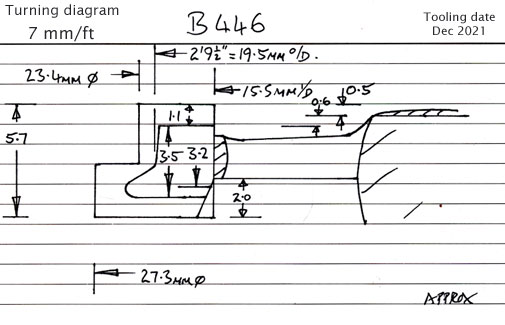 Turning diagram
7 mm/ft
B446
Tooling date
Dec 2021
2'9½" = 19.5mm O/D.
23.4mm ⌀
15.5mm I/D
0.5
0.6
1.1
5.7
3.5
3.2
2.0
27.3mm ⌀
APPROX